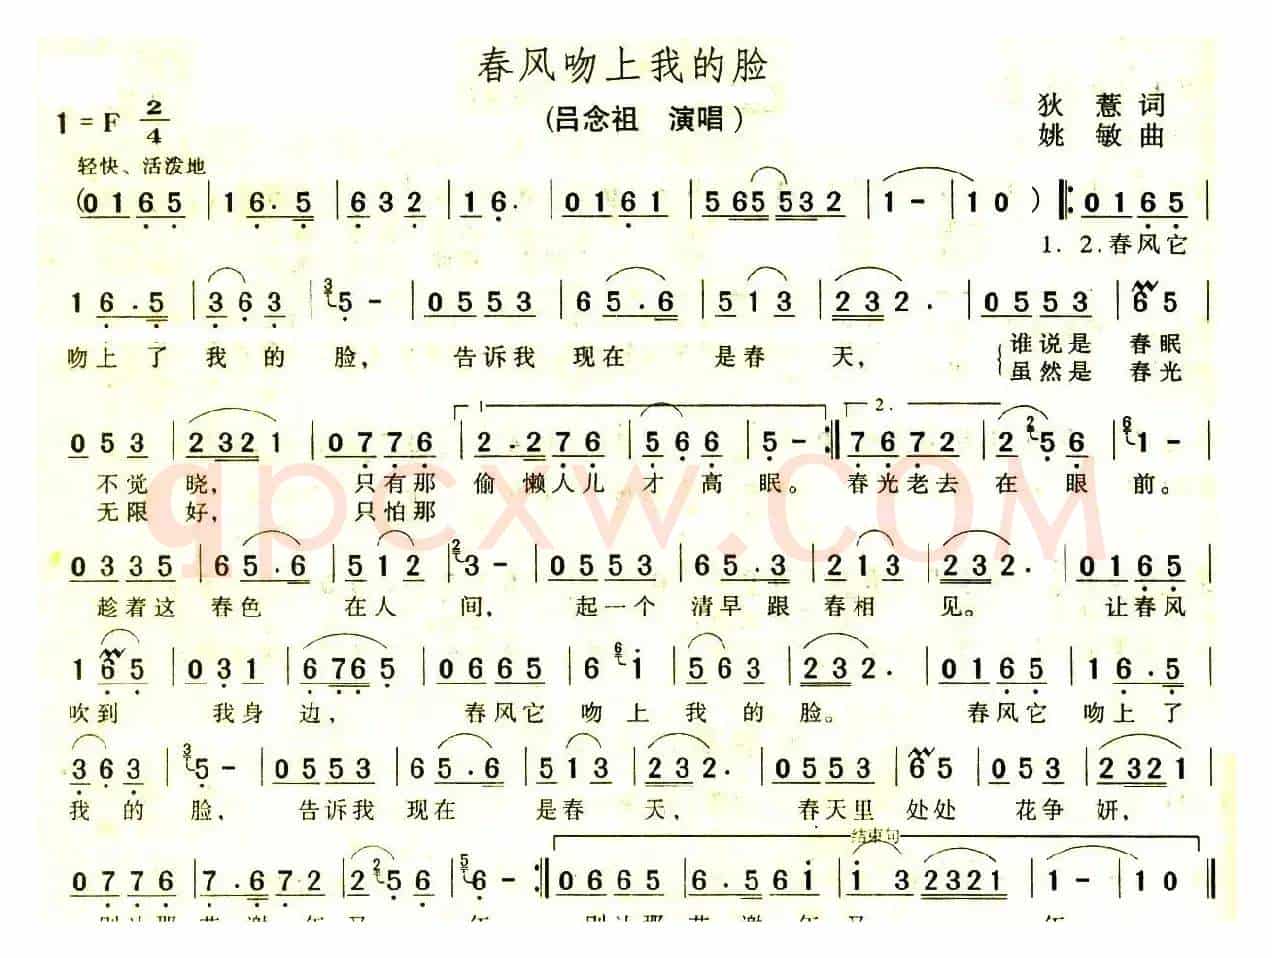 春风吻上我的脸
(吕念祖 演唱)
狄薏词
姚敏曲
1=F 2/4
轻快、活泼地
(0165 | 16.5 | 632 | 16. | 0161 | 565532 | 1- | 10 ) |: 0165 |
1. 2.春风它
16.5 | 363 | 3 5- | 0553 | 65.6 | 513 | 232. | 0553 | 65
吻上了 我的 脸, 告诉我 现在 是春 天, 谁说是 春眠
虽然是 春光
1 2.
053 | 2321 | 0776 | 2.276 | 566 | 5- :| 7672 | 2 2 56 | 6 1-
不觉 晓, 只有那 偷懒人儿 才高 眠。 春光老去 在眼 前。
无限 好, 只怕那
qpcxw.com
0335 | 65.6 | 512 | 2 3- | 0553 | 65.3 | 213 | 232. | 0165 |
趁着这 春色 在人 间, 起一个 清早跟 春相 见。 让春风
165 | 031 | 6765 | 0665 | 6 6 1 | 563 | 232. | 0165 | 16.5 |
吹到 我身 边, 春风它 吻上 我的 脸。 春风它 吻上了
363 | 3 5- | 0553 | 65.6 | 513 | 232. | 0553 | 65 | 053 | 2321 |
我的 脸, 告诉我 现在 是春 天, 春天里 处处 花争 妍,
结束句
0776 | 7.672 | 2 2 56 | 5 6- :| 0665 | 6.561 | 1 32321 | 1- | 10 ||